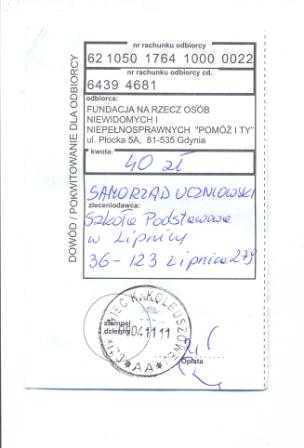 DOWÓD / POKWITOWANIE DLA ODBIORCY
nr rachunku odbiorcy
62 1050 1764 1000 0022
nr rachunku odbiorcy cd.
6439 4681
odbiorca:
FUNDACJA NA RZECZ OSÓB
NIEWIDOMYCH I
NIEPEŁNOSPRAWNYCH "POMÓŻ I TY"
ul. Płocka 5A, 81-535 Gdynia
kwota:
40 zł
SAMORZĄD UCZNIOWSKI
zleceniodawca:
Szkoła Podstawowa
w Lipnicy
36-123 Lipnica 279
stempel
dzienny
04.11.11
AA
Opłata